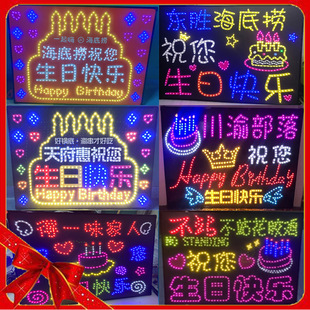 一起嗨 海底捞
海底捞祝您
生日快乐
Happy Birthday
东胜海底捞
祝您
生日快乐
天府惠祝您
生日快乐
Happy Birthday
川渝部落
祝您
Happy Birthday
生日快乐
一味家人
快乐
STANDING
祝您
生日快乐